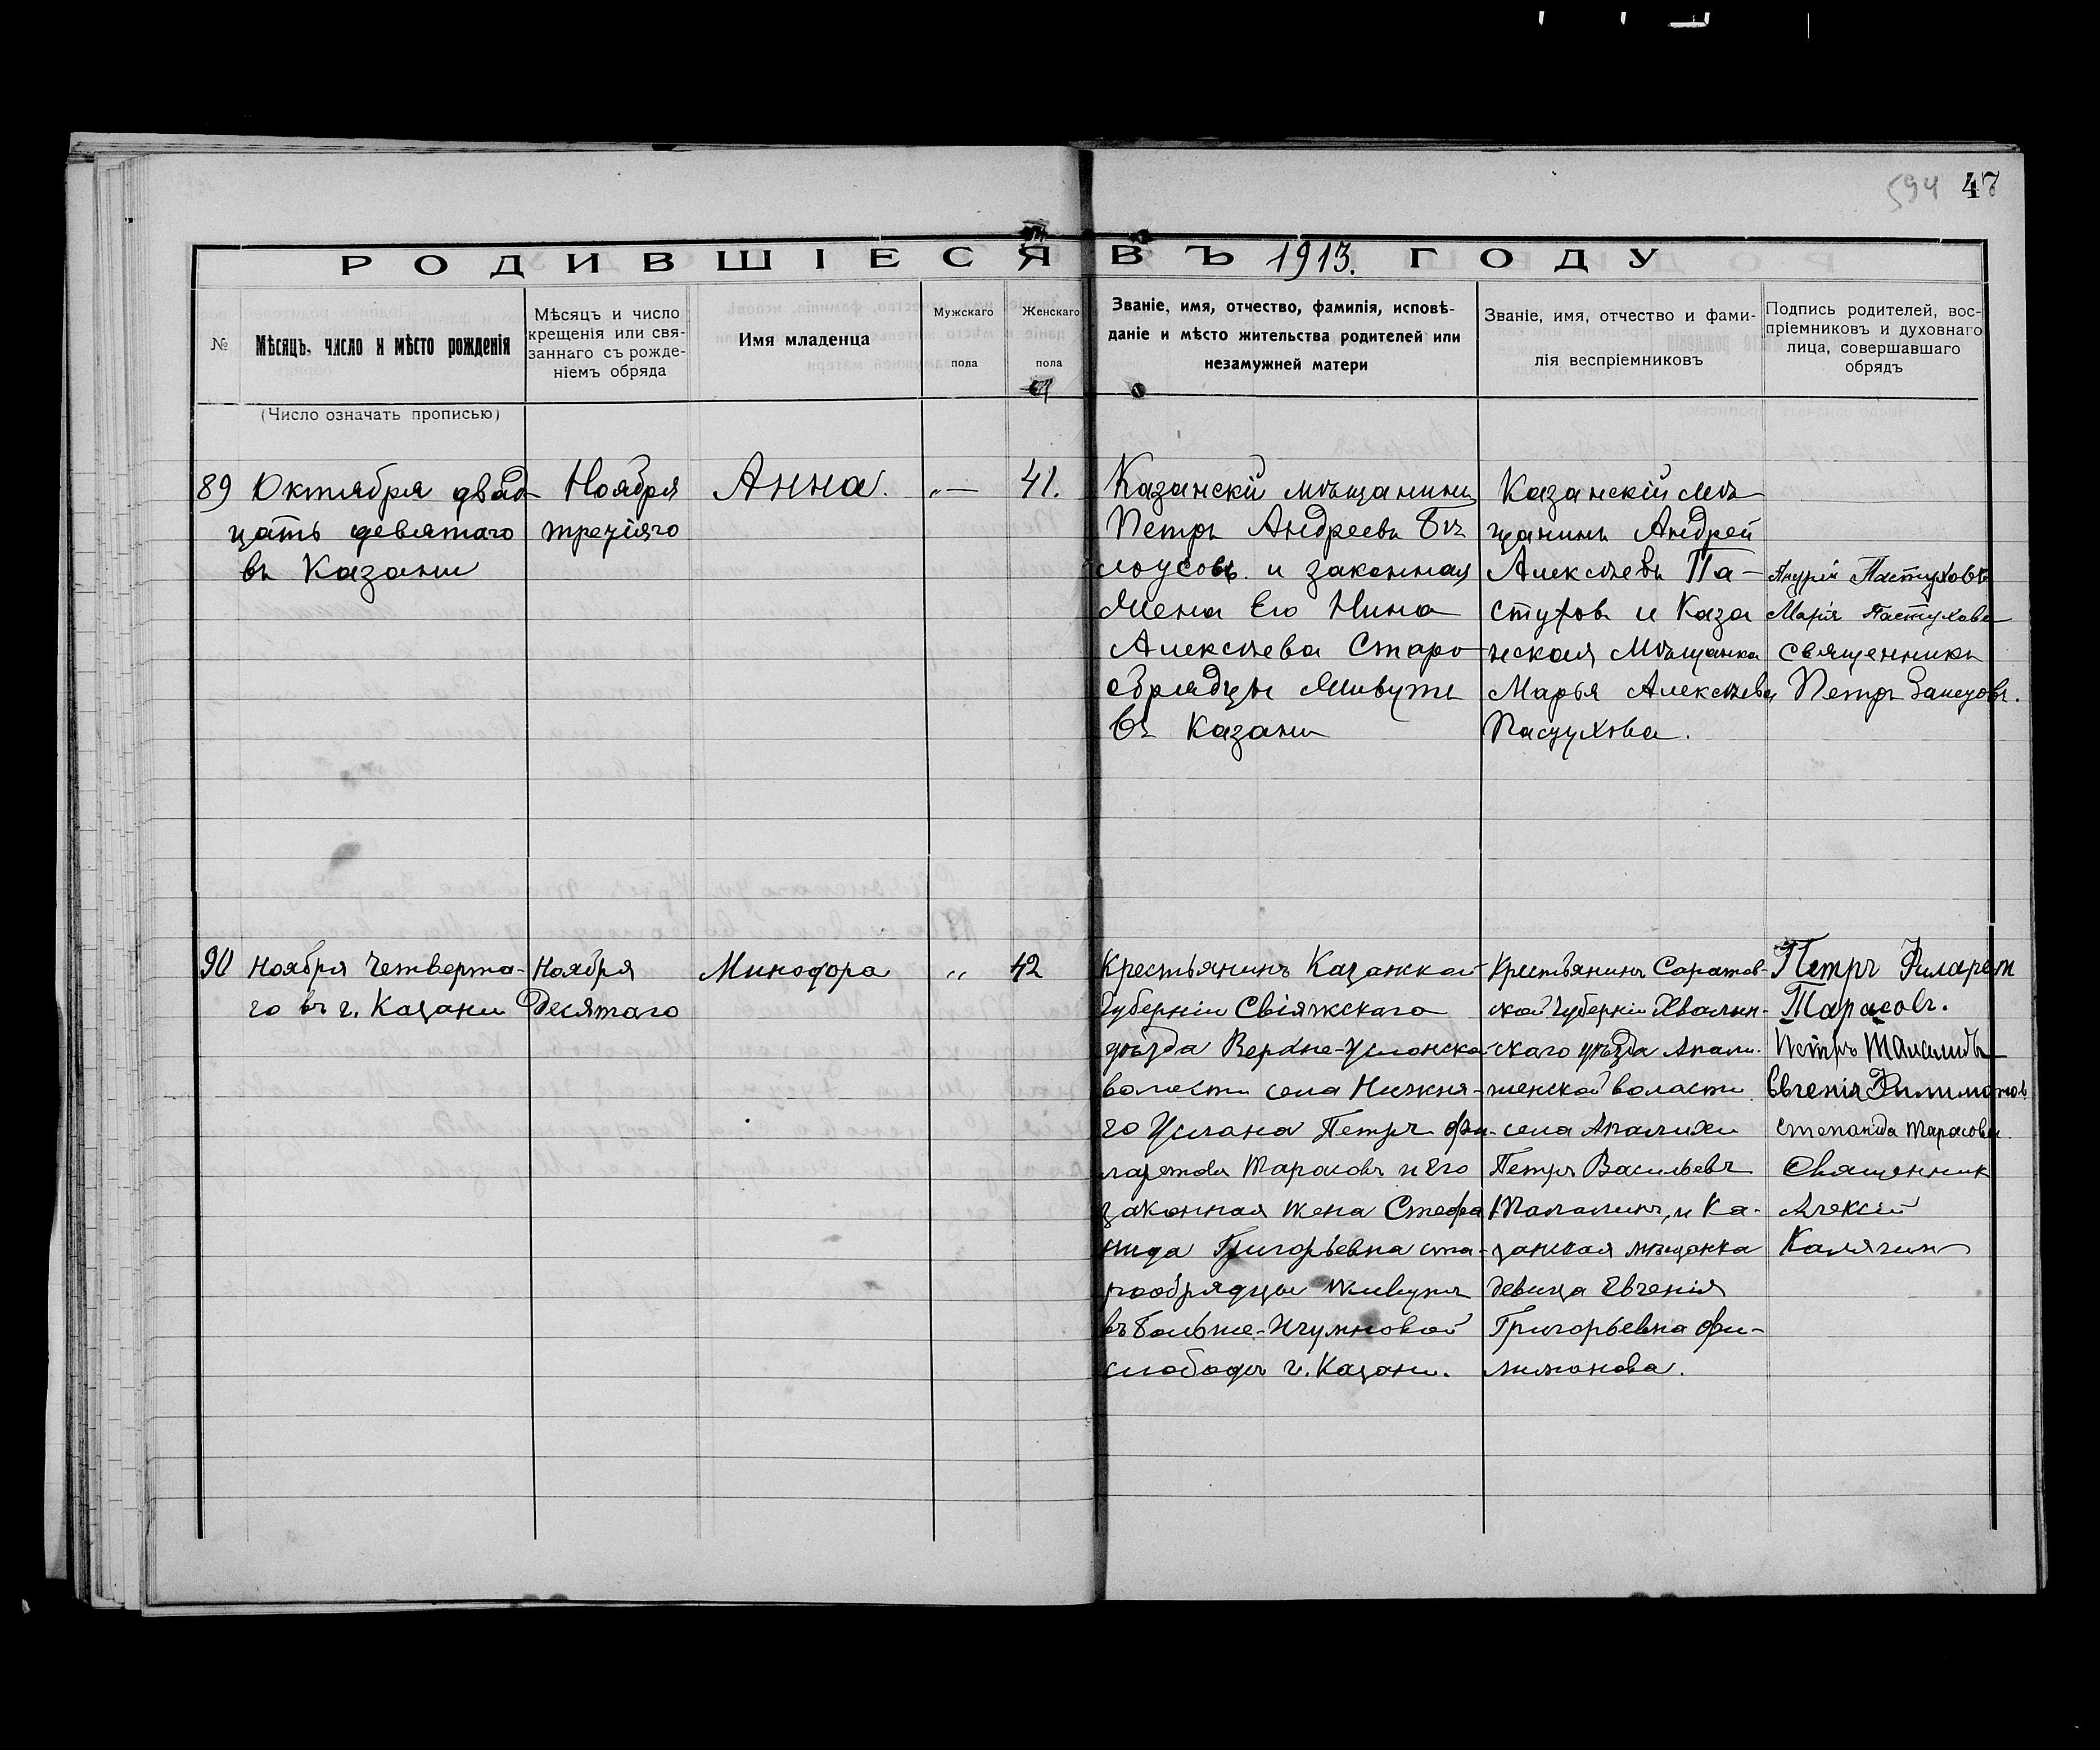 594 47
РОДИВШІЕСЯ ВЪ 1913. ГОДУ
№
Мѣсяцъ, число и мѣсто рожденія
(Число означать прописью)
Мѣсяцъ и число
крещенія или свя-
заннаго съ рожде-
ніемъ обряда
Имя младенца
Мужскаго
пола
Женскаго
пола
Званіе, имя, отчество, фамилія, исповѣ-
даніе и мѣсто жительства родителей или
незамужней матери
Званіе, имя, отчество и фами-
лія воспріемниковъ
Подпись родителей, вос-
пріемниковъ и духовнаго
лица, совершавшаго
обрядъ
89
Октября двад-
цать девятаго
въ Казани
Ноября
третіяго
Анна.
„—
41.
Казанскій мѣщанинъ
Петръ Андреевъ Бѣ
лоусовъ. и законная
Жена Его Нина
Алексѣева Старо
обрядцы живутъ
въ Казани
Казанскій мѣ
щанинъ Андрей
Алексѣевъ Па-
стуховъ и Каза
нская Мѣщанка
Марья Алексѣева
Пастухова.
Андрей Пастуховъ
Марія Пастухова
священникъ
Петръ
90
Ноября Четверта-
го въ г. Казани
Ноября
Десятаго
Минодора
„
42
Крестьянинъ Казанской
Губерніи Свіяжскаго
уѣзда Верхне-Услонской
волости села Нижня-
го Услона Петръ Фи-
ларетовъ Тарасовъ и Его
законная жена Стефа
нида Григорьевна ста-
рообрядцы живутъ
въ Больше-Игумновой
слободѣ г. Казани.
Крестьянинъ Саратов-
ской Губерніи Хвалын-
скаго уѣзда Апали-
хенской волости
села Апалихи
Петръ Васильевъ
и Ка-
занская мѣщанка
девица Евгенія
Григорьевна Фи-
лимонова.
Петръ Филарет
Тарасовъ.
Петръ
Евгенія Филимонов
Степанида Тарасова.
Священник
Алексій
Калягин